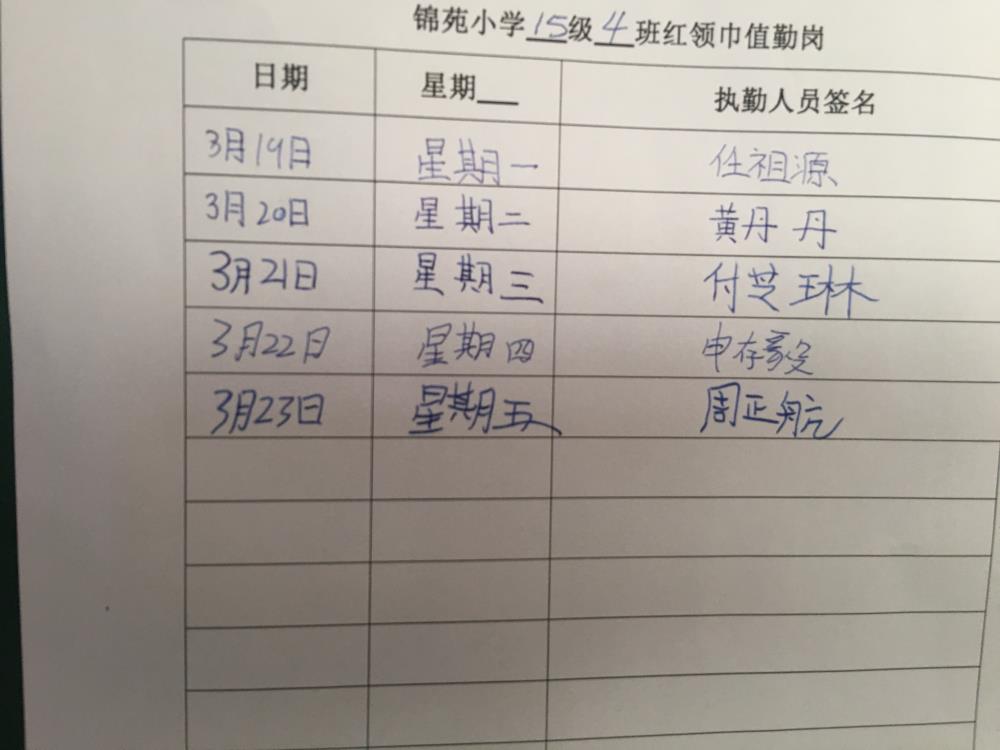 锦苑小学15级4班红领巾值勤岗
日期 星期 执勤人员签名
3月19日 星期一 任祖源
3月20日 星期二 黄丹丹
3月21日 星期三 付芝琳
3月22日 星期四 申存毅
3月23日 星期五 周正航